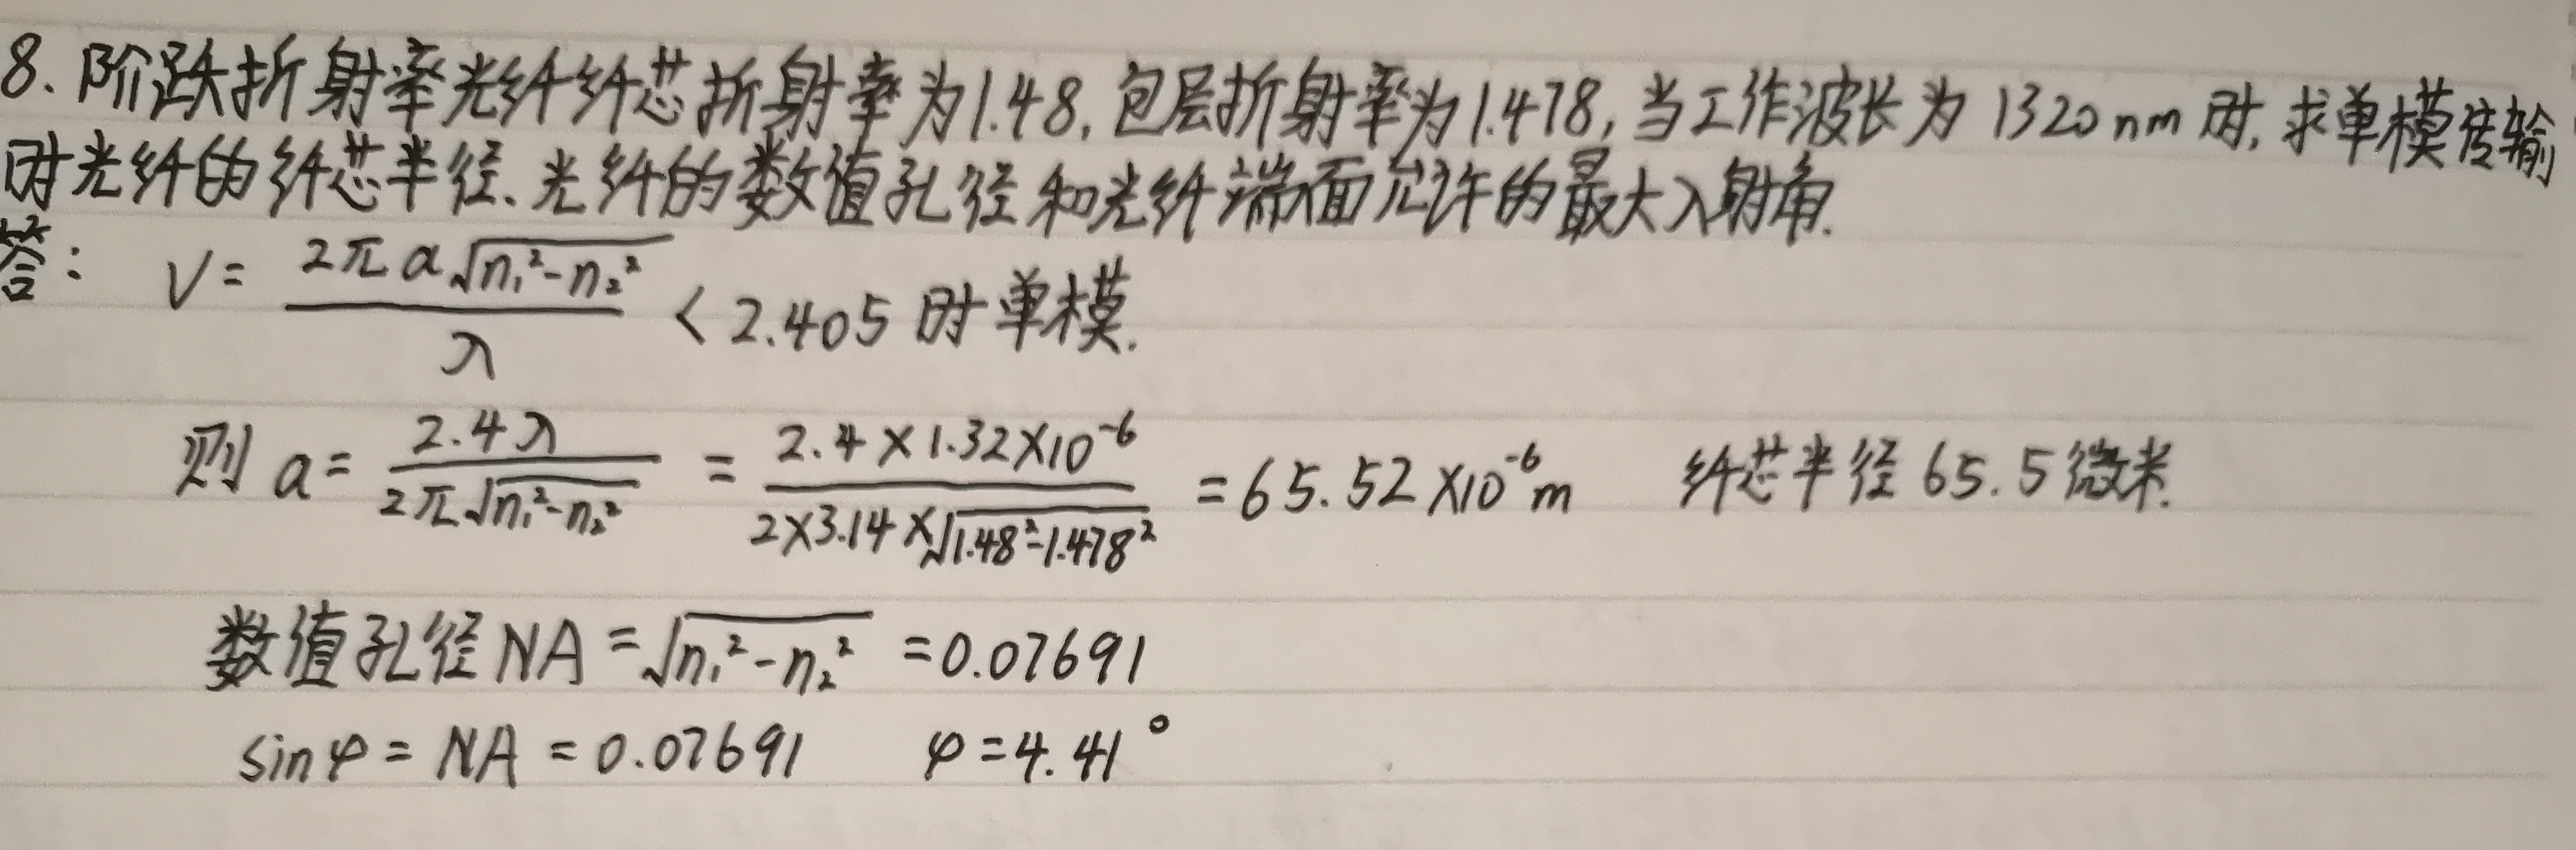 8. 阶跃折射率光纤纤芯折射率为1.48, 包层折射率为1.478, 当工作波长为 1320nm 时, 求单模传输
时光纤的纤芯半径、光纤的数值孔径和光纤端面允许的最大入射角.
答: V = 2πa√(n₁²-n₂²) / λ < 2.405 时单模.
则 a = 2.4λ / 2π√(n₁²-n₂²) = 2.4×1.32×10⁻⁶ / 2×3.14×√(1.48²-1.478²) = 65.52×10⁻⁶m 纤芯半径 65.5微米.
数值孔径NA = √(n₁²-n₂²) = 0.07691
sinφ = NA = 0.07691 φ = 4.41°